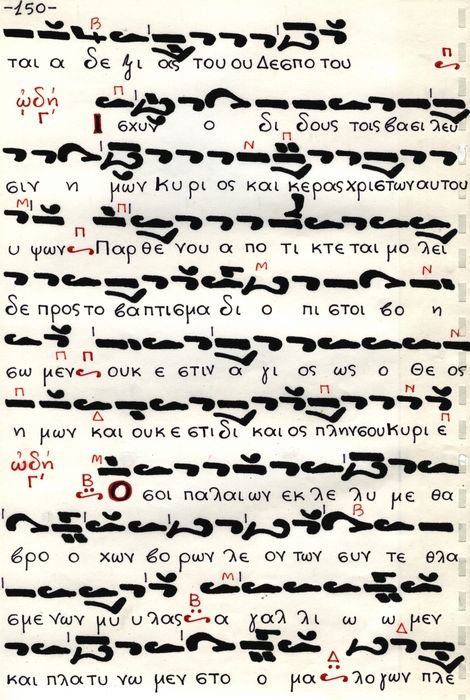 -150-
ται α δε ξι ας του ου Δεσπο του
ᾠδή Γ΄
Ι σχυν ο δι δους τοις βασι λευ
σιν η μων Κυρι ος και κερας χριστων αυτου
υ ψων Παρθε νου α πο τι κτε ται μο λει
δε προς το βαπτισμα δι ο πι στοι βο η
σω μεν ουκ ε στιν α γι ος ως ο Θε ος
η μων και ουκ ε στι δι και ος πλην σου Κυρι ε
ᾠδή Γ΄
Ο σοι παλαι ων εκ λε λυ με θα
βρο ο χων βο ρων λε ον των συν τε θλα
σμε νων μυ υ λας α γαλ λι ω ω μεν
και πλατυ νω μεν στο ο μα λογων πλε